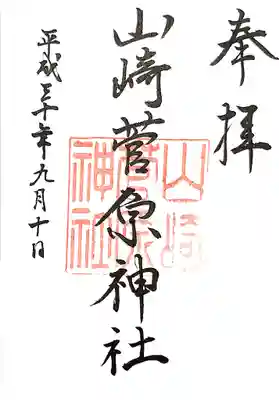 奉拝
山崎菅原神社
平成三十年九月十日
山崎
菅原
神社